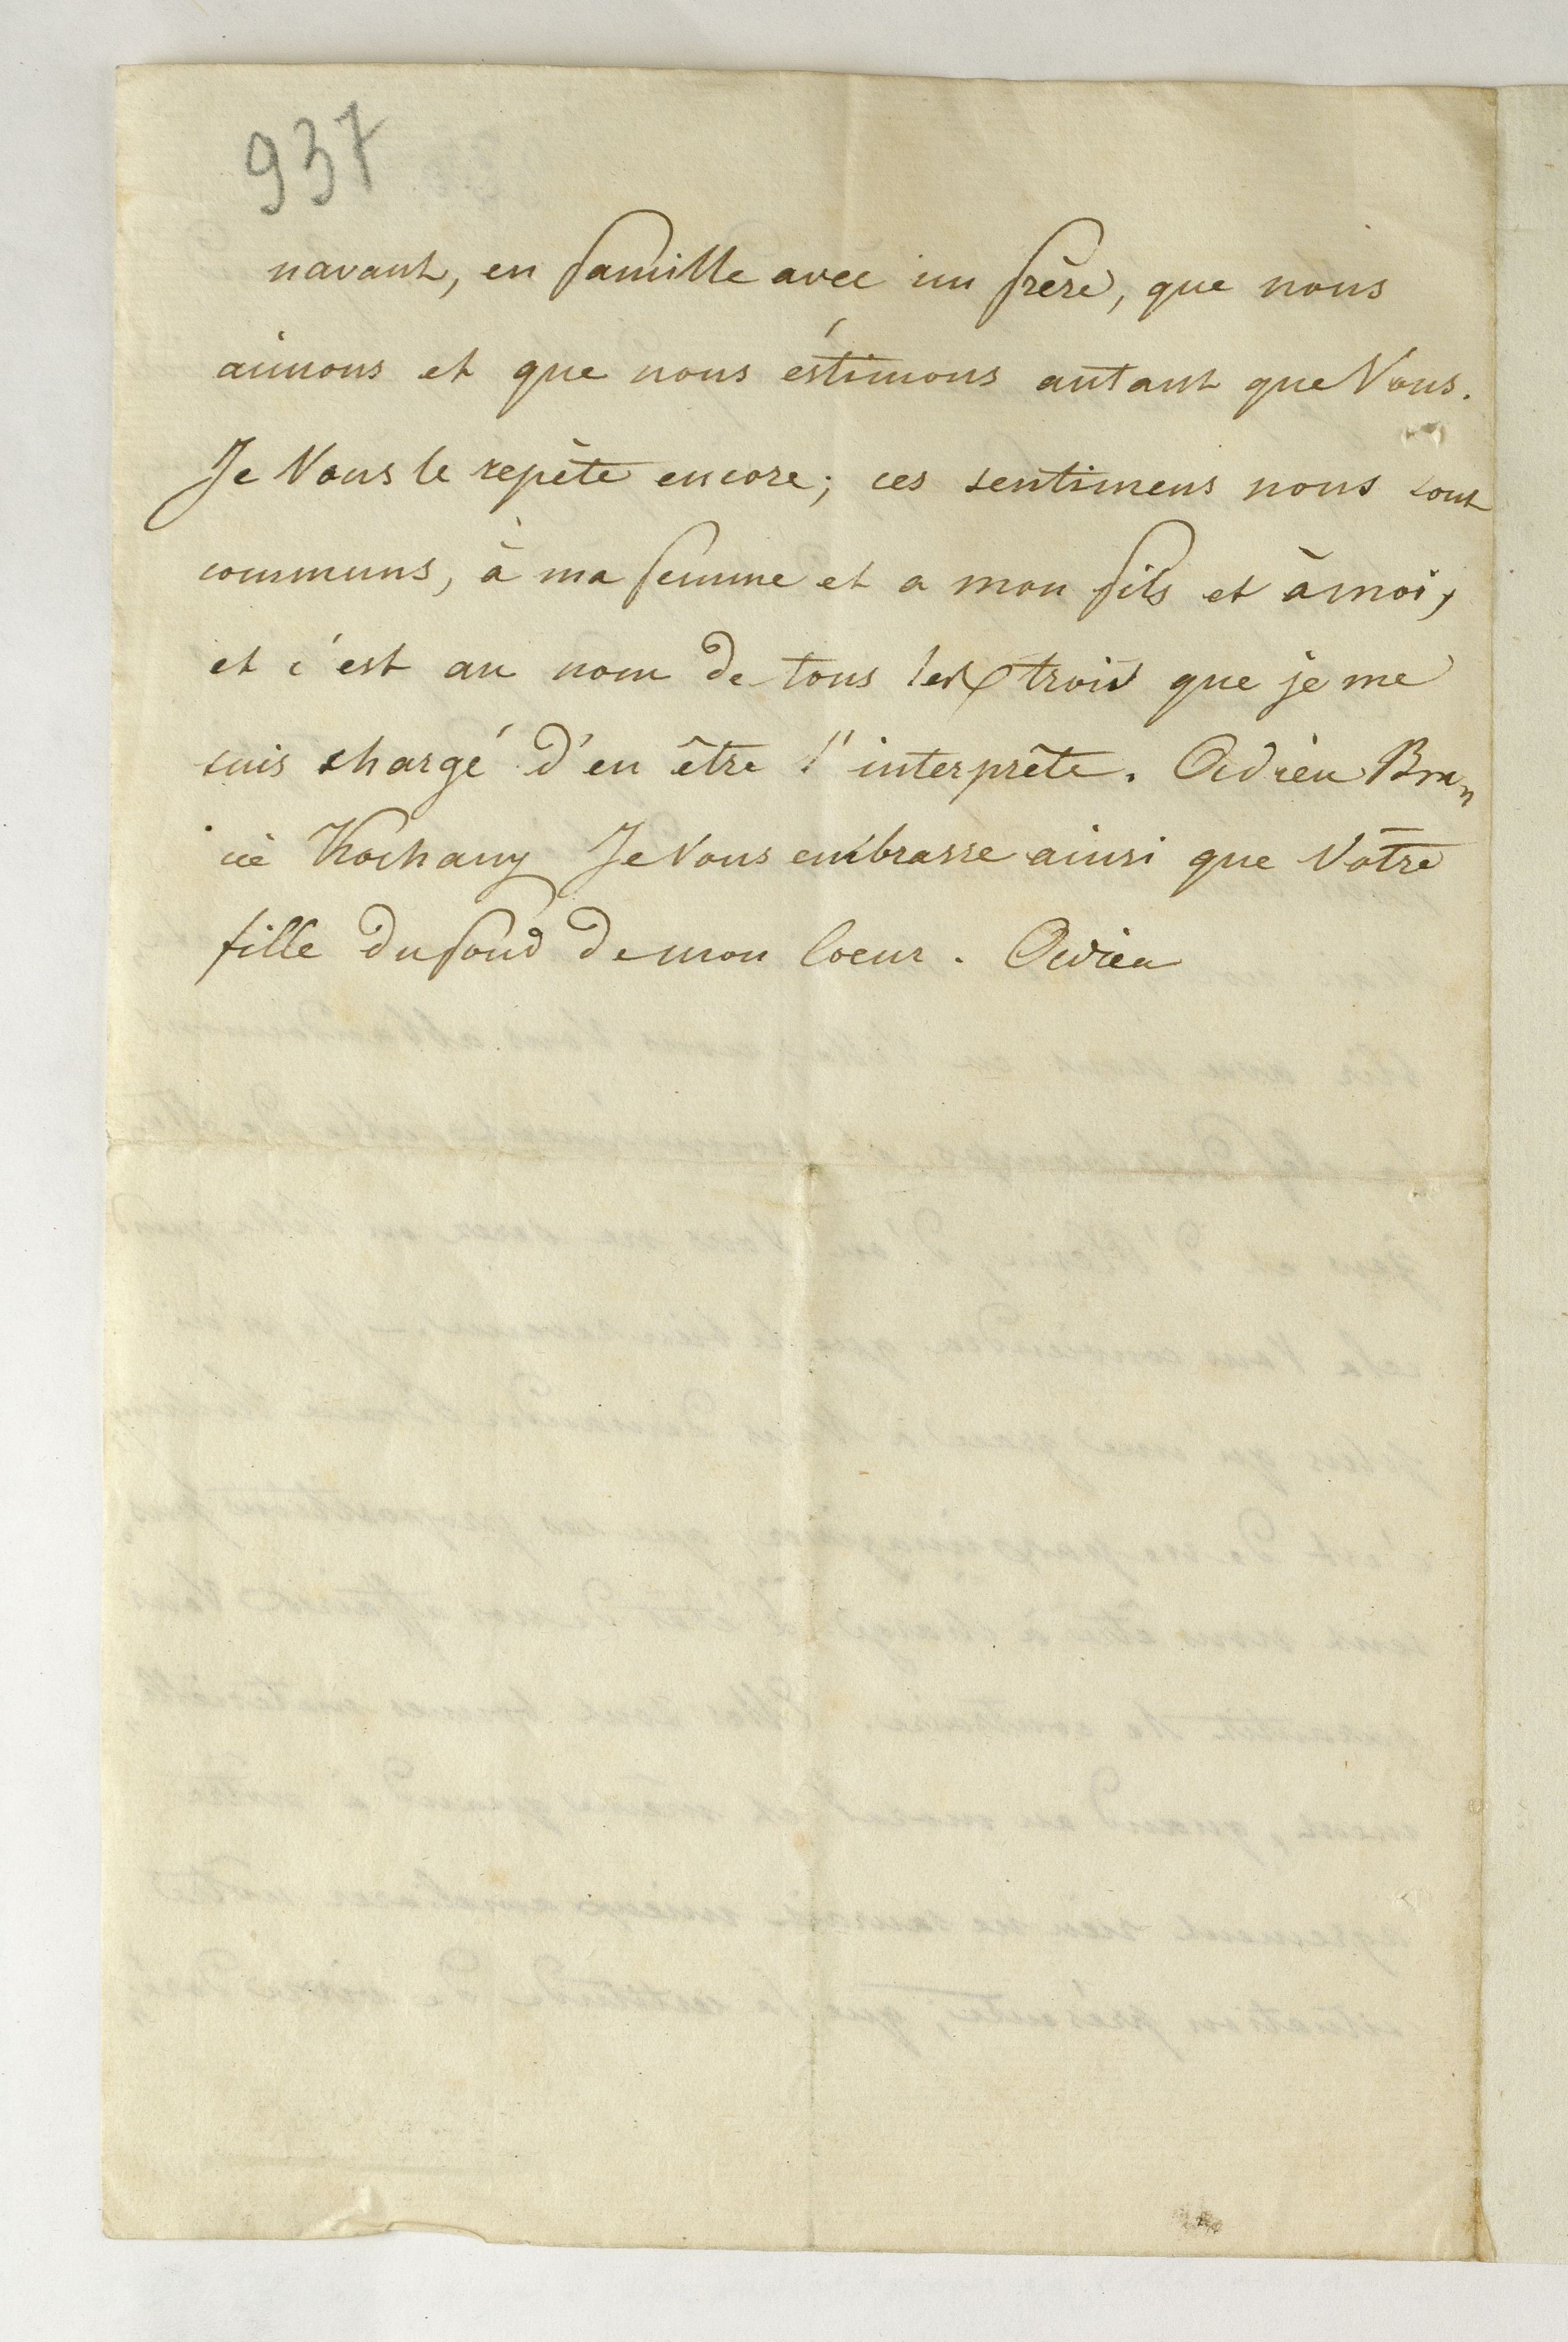 937
navant, en famille avec un frère, que nous
aimons et que nous éstimons autant que Vous.
Je Vous le repète encore; ces sentimens nous sont
communs, à ma femme et a mon fils et à moi,
et c'est au nom de tous les trois que je me
suis chargé d'en être l'interprête. Adieu Bra„
cie Kochany Je Vous embrasse ainsi que Vôtre
fille du fond de mon Coeur. Adieu